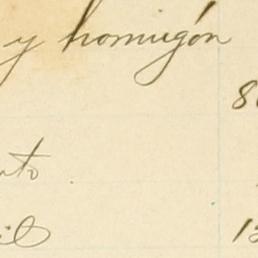 y hormigón
8
nto
il
13